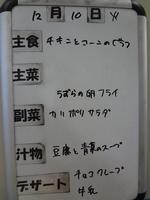 12月10日火
主食 チキンとコーンのピラフ
主菜
うずらの卵フライ
副菜 カリポリサラダ
汁物 豆腐と青菜のスープ
デザート チョコクレープ
牛乳